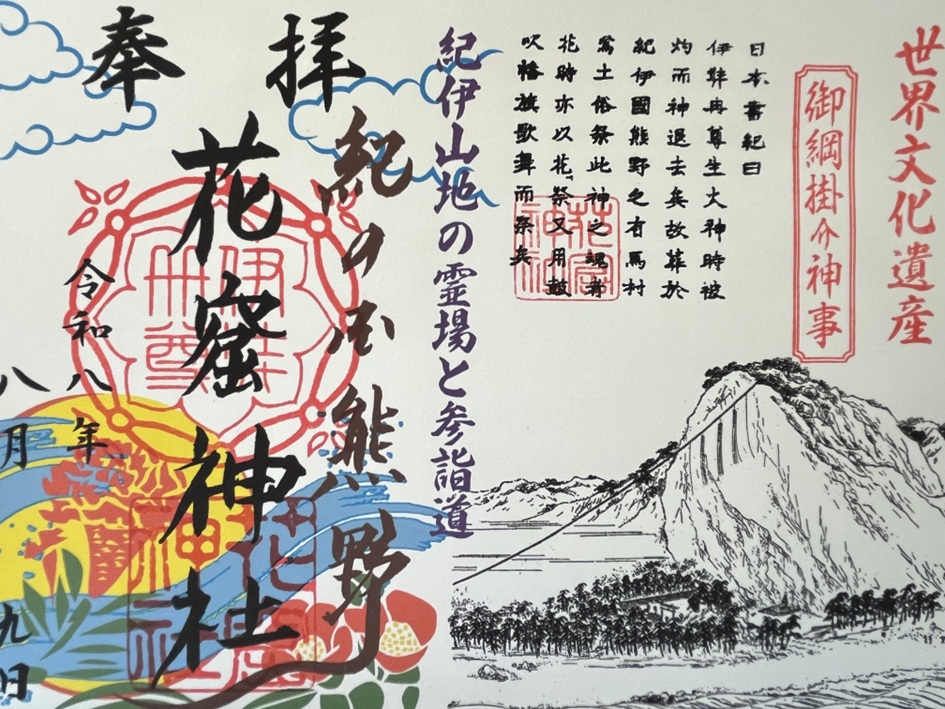 世界文化遺産
御綱掛介神事
日本書紀曰
伊弉冉尊生火神時被
灼而神退去矣故葬於
紀伊國熊野之有馬村
焉土俗祭此神之魂者
花時亦以花祭又用鼓
吹幡旗歌舞而祭矣
花窟神社
紀伊山地の霊場と参詣道
奉拝
紀の国熊野
花窟神社
伊弉冊尊
花窟神社
令和八年
八月九日